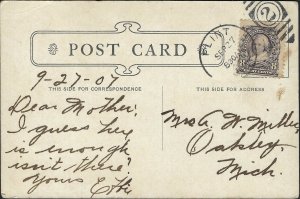 POST CARD
FLINT
SEP 27
THIS SIDE FOR CORRESPONDENCE
THIS SIDE FOR ADDRESS
9-27-07
Dear Mother:
I guess hey
is enough
isn't there?
Yours
Mrs A. W. Miller
Oakley
Mich.